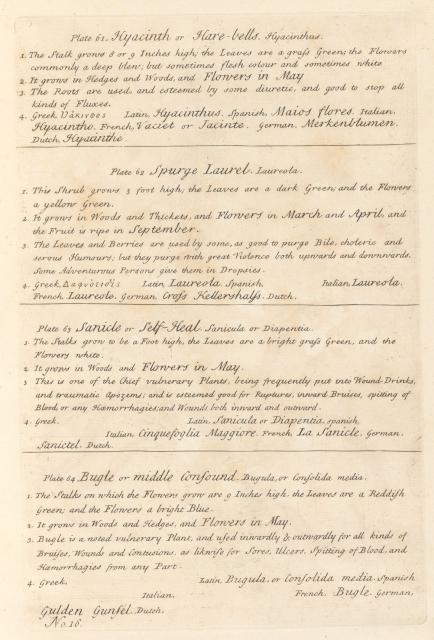 Plate 61. Hyacinth or Hare-bells. Hyacinthus.
1. The Stalk grows 8 or 9 Inches high; the Leaves are a grass Green; the Flowers
commonly a deep blew, but sometimes flesh colour and sometimes white
2. It grows in Hedges and Woods, and Flowers in May
3. The Roots are used, and esteemed by some diuretic, and good to stop all
kinds of Fluxes.
4. Greek, Latin, Hyacinthus. Spanish, Maios flores. Italian,
Hyacintho. French, Vaciet or Jacinte. German, Merkenblumen.
Dutch, Hyacinthe
Plate 62 Spurge Laurel. Laureola.
1. This Shrub grows 3 foot high; the Leaves are a dark Green; and the Flowers
a yellow Green.
2. It grows in Woods and Thickets, and Flowers in March and April, and
the Fruit is ripe in September.
3. The Leaves and Berries are used by some, as good to purge Bile, choleric and
serous Humours; but they purge with great Violence both upwards and downwards.
Some Adventurous Persons give them in Dropsies.
4. Greek, Latin, Laureola. Spanish, Italian, Laureola.
French, Laureole. German, Cross Kellershalss. Dutch,
Plate 63 Sanicle or Self-Heal. Sanicula or Diapentia.
1. The Stalks grow to be a Foot high, the Leaves are a bright grass Green, and the
Flowers white.
2. It grows in Woods and Flowers in May.
3 This is one of the Chief vulnerary Plants, being frequently put into Wound-Drinks,
and traumatic Apozems; and is esteemed good for Ruptures, inward Bruises, spitting of
Blood or any Hæmorrhagies; and Wounds both inward and outward.
4. Greek. Latin, Sanicula or Diapentia. Spanish,
Italian, Cinquefoglia Maggiore. French, La Sanicle. German,
Sanictel. Dutch.
Plate 64 Bugle or middle Consound. Bugula, or Consolida media.
1. The Stalks on which the Flowers grow are 9 Inches high, the Leaves are a Reddish
Green; and the Flowers a bright Blue.
2. It grows in Woods and Hedges, and Flowers in May.
3. Bugle is a noted vulnerary Plant, and used inwardly & outwardly for all kinds of
Bruises, Wounds and Contusions, as likwise for Sores, Ulcers, Spitting of Blood, and
Hæmorrhagies from any Part.
4. Greek. Latin, Bugula, or Consolida media. Spanish
Italian, French, Bugle. German,
Gulden Gunsel. Dutch.
No. 16.